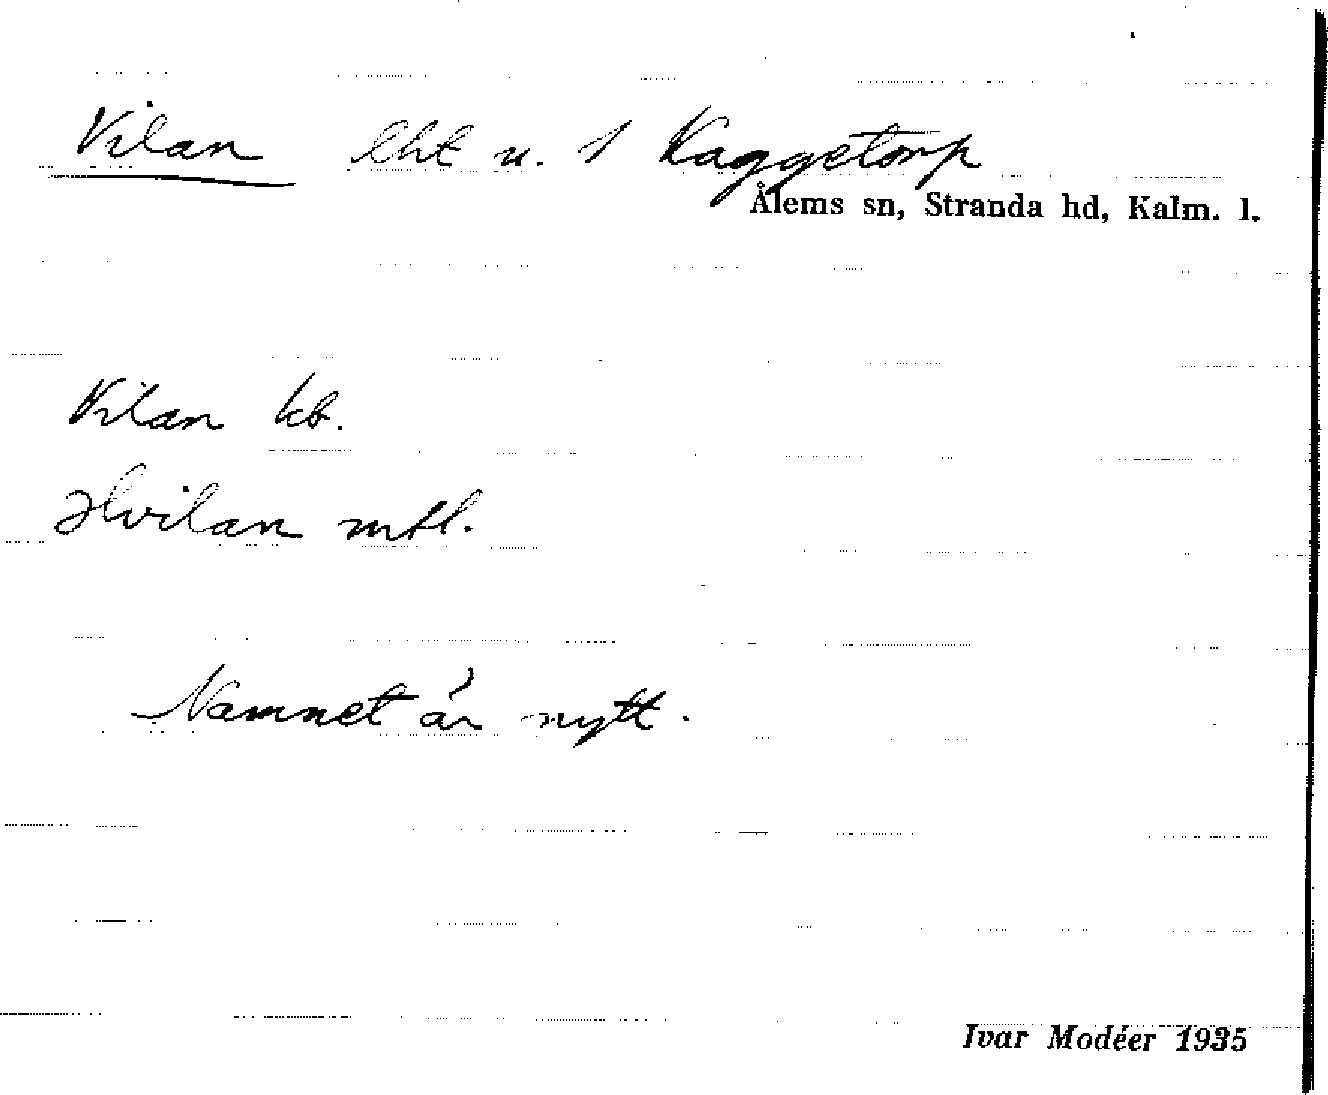 Vilan lht u. 1 Kaggetorp
Ålems sn, Stranda hd, Kalm. l.
Vilan kb.
Hvilan mtl.
Namnet är nytt.
Ivar Modéer 1935